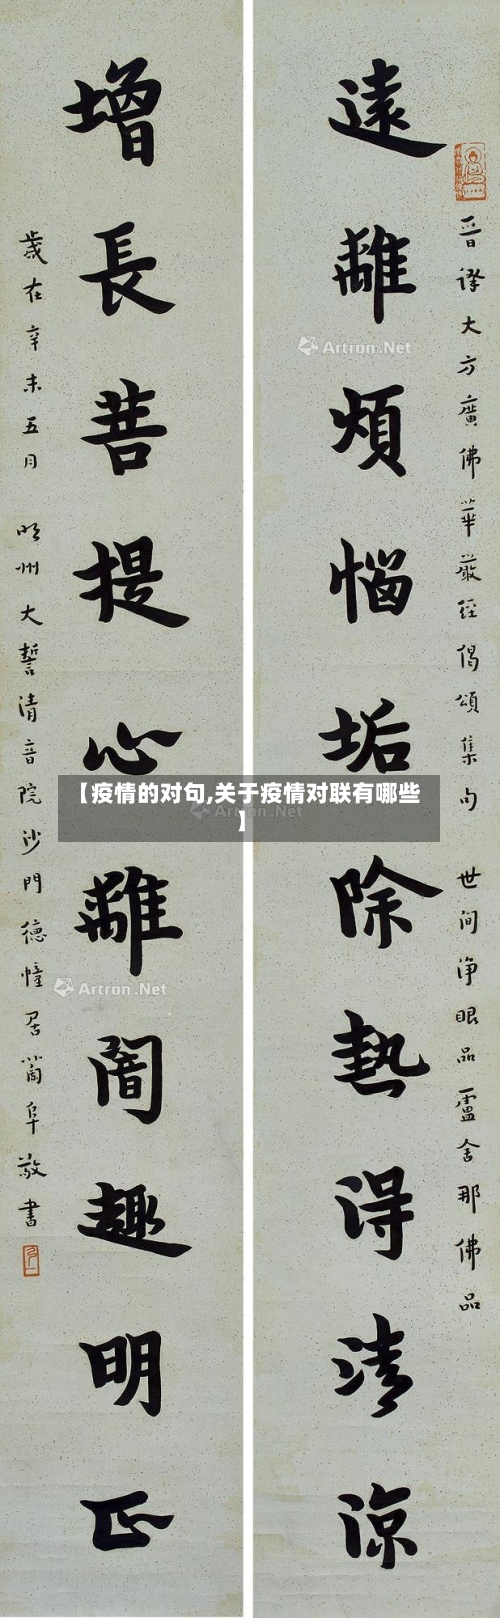 晋译大方廣佛華嚴經偈頌集句 世间净眼品盧舍那佛品
遠離煩惱垢除熱得清涼
增長菩提心離闇趣明正
歲在辛未五月 明州大誓清音院沙門德幢居簫阜敬書
Artron.Net
Artron.Net
【疫情的对句,关于疫情对联有哪些
】